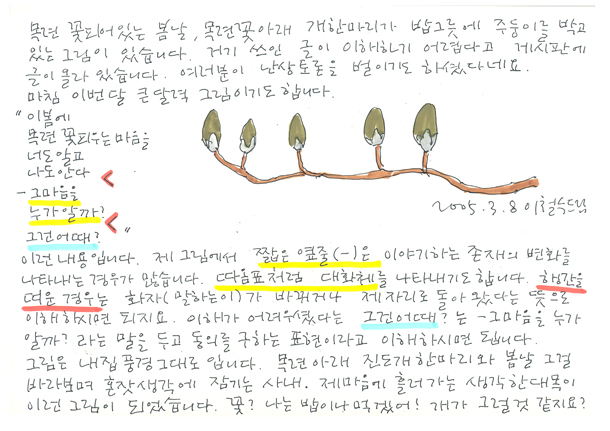 목련 꽃피어있는 봄날, 목련꽃아래 개한마리가 밥그릇에 주둥이를 박고
있는그림이 있습니다. 거기 쓰인 글이 이해하기 어렵다고 게시판에
글이 올라 있습니다. 여러분이 난상토론을 벌이기도 하셨다네요.
마침 이번달 큰달력 그림이기도합니다.
"이봄에
목련 꽃피우는마음을
너도알고
나도안다 <
- 그마음을
누가알까? <
그건어때? "
2005.3.8 이철수드림
이런내용입니다. 제 그림에서 짧은 옆줄(-)은 이야기하는 존재의 변화를
나타내는 경우가 많습니다. 따옴표처럼 대화체를 나타내기도합니다. 행간을
띄운 경우는 화자(말하는이)가 바뀌거나 제자리로 돌아 왔다는 뜻으로
이해하시면 되지요. 이해가 어려우셨다는 그건어때? 는 -그마음을 누가
알까? 라는 말을 두고 동의를 구하는 표현이라고 이해하시면 됩니다.
그림은 내집풍경그대로 입니다. 목련아래 진도개한마리와 봄날 그걸
바라보며 혼잣생각에 잠기는 사내. 제마음에 흘러가는 생각 한대목이
이런 그림이 되었습니다. 꽃? 나는 밥이나 먹겠어! 개가 그럴것 같지요?